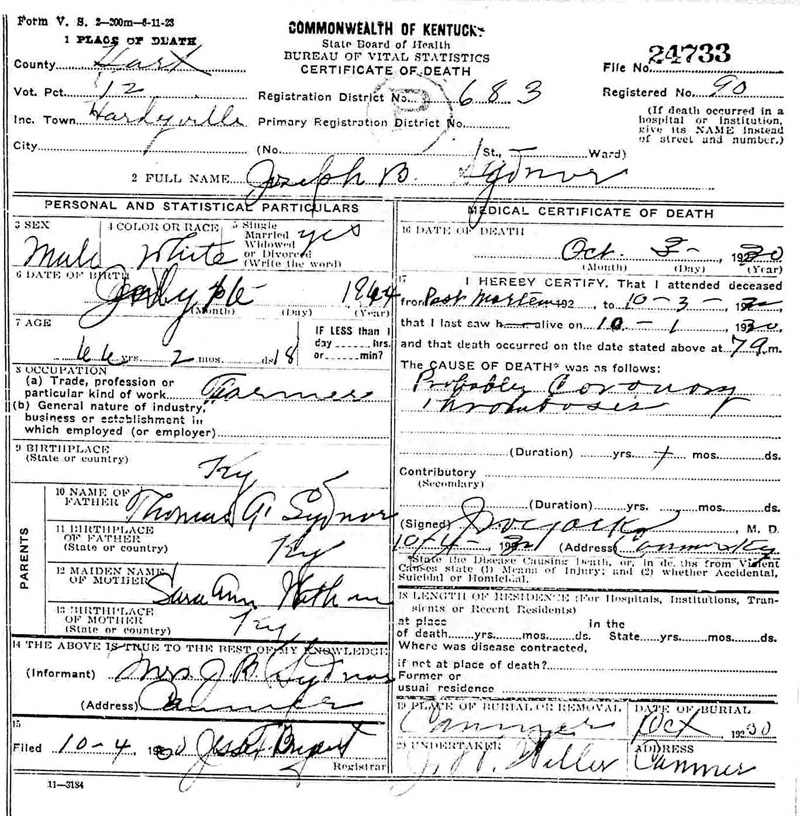 Form V. S. 2-200m-6-11-23
COMMONWEALTH OF KENTUCKY
State Board of Health
BUREAU OF VITAL STATISTICS
CERTIFICATE OF DEATH
1 PLACE OF DEATH
County Hart
File No. 24733
Vot. Pct. 12
Registration District No. 683
Registered No. 90
Inc. Town Hardyville
Primary Registration District No.
(If death occurred in a
hospital or institution,
give its NAME instead
of street and number.)
City
(No. St., Ward)
2 FULL NAME Joseph B. Sydnor
PERSONAL AND STATISTICAL PARTICULARS
3 SEX
Male
4 COLOR OR RACE
White
5 Single
Married yes
Widowed
or Divorced
(Write the word)
6 DATE OF BIRTH
1864
(Month) (Day) (Year)
7 AGE
66 yrs. 2 mos. 18 ds.
IF LESS than 1
day hrs.
or min?
8 OCCUPATION
(a) Trade, profession or
particular kind of work Farmer
(b) General nature of industry,
business or establishment in
which employed (or employer)
9 BIRTHPLACE
(State or country)
Ky
PARENTS
10 NAME OF
FATHER
Thomas A. Sydnor
11 BIRTHPLACE
OF FATHER
(State or country)
Ky
12 MAIDEN NAME
OF MOTHER
Sara Ann
13 BIRTHPLACE
OF MOTHER
(State or country)
Ky
14 THE ABOVE IS TRUE TO THE BEST OF MY KNOWLEDGE
(Informant) Mrs J. B. Sydnor
(Address) Canmer
15
Filed 10-4 1930
Registrar
11-3184
MEDICAL CERTIFICATE OF DEATH
16 DATE OF DEATH
Oct. 3- 1930
(Month) (Day) (Year)
17 I HEREBY CERTIFY, That I attended deceased
from Post Mortem 192 , to 10-3-
that I last saw h alive on 10-1 1930,
and that death occurred on the date stated above at m.
The CAUSE OF DEATH* was as follows:
Probably Coronary
Thrombosis
(Duration) yrs. mos. ds.
Contributory
(Secondary)
(Duration) yrs. mos. ds.
(Signed) M. D.
10-4- (Address) Canmer Ky
*State the Disease Causing Death, or, in deaths from Violent
Causes state (1) Means of Injury; and (2) whether Accidental,
Suicidal or Homicidal.
18 LENGTH OF RESIDENCE (For Hospitals, Institutions, Tran-
sients or Recent Residents)
at place in the
of death yrs. mos. ds. State yrs. mos. ds.
Where was disease contracted,
if not at place of death?
Former or
usual residence
19 PLACE OF BURIAL OR REMOVAL
Canmer
DATE OF BURIAL
Oct 1930
20 UNDERTAKER
ADDRESS
Canmer